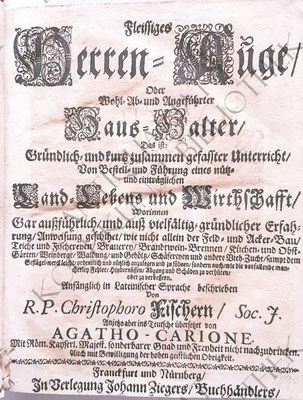 Fleissiges
Herren-Auge/
Oder
Wohl-Ab- und Angeführter
Haus-Halter/
Das ist:
Gründlich- und kurtz zusammen gefaster Unterricht/
Von Bestell- und Führung eines nütz-
und einträglichen
Land-Lebens und Wirthschafft/
Worinnen
Gar außführlich- und auß vielfältig-gründlicher Erfah-
rung/ Anweisung geschihet/ wie nicht allein der Feld- und Acker-Bau/
Teiche und Fischereyen/ Brauereyen/ Brandtwein-Brennen/ Küchen- und Obst-
Gärten/ Weinberge/ Waldung/ und Gehöltz/ Schäfereyen und andere Vieh-Zucht/ samt dem
Anfänglich in Lateinischer Sprache beschrieben
Von
R. P. Christophoro Fischern/ Soc. J.
Anjetzo aber ins Teutsche übersetzet von
AGATHO-CARIONE.
Mit Röm. Kayserl. Majest. sonderbarer Gnad und Freyheit nicht nachzudrucken.
Auch mit Bewilligung der hohen geistlichen Obrigkeit.
Franckfurt und Nürnberg/
In Verlegung Johann Ziegers/ Buchhändlers/